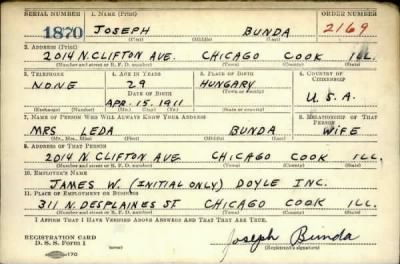 SERIAL NUMBER 1. NAME (Print) ORDER NUMBER
1870 JOSEPH BUNDA 2169
(First) (Middle) (Last)
2. ADDRESS (Print)
2014 N. CLIFTON AVE. CHICAGO COOK ILL.
(Number and street or R. F. D. number) (Town) (County) (State)
3. TELEPHONE 4. AGE IN YEARS 5. PLACE OF BIRTH 6. COUNTRY OF CITIZENSHIP
NONE 29 HUNGARY
DATE OF BIRTH (Town or county)
APR. 15. 1911 U.S.A.
(Exchange) (Number) (Mo.) (Day) (Yr.) (State or country)
7. NAME OF PERSON WHO WILL ALWAYS KNOW YOUR ADDRESS 8. RELATIONSHIP OF THAT PERSON
MRS. LEDA BUNDA WIFE
(Mr., Mrs., Miss) (First) (Middle) (Last)
9. ADDRESS OF THAT PERSON
2014 N. CLIFTON AVE. CHICAGO COOK ILL.
(Number and street or R. F. D. number) (Town) (County) (State)
10. EMPLOYER'S NAME
JAMES W. (INITIAL ONLY) DOYLE INC.
11. PLACE OF EMPLOYMENT OR BUSINESS
311 N. DESPLAINES ST CHICAGO COOK ILL.
(Number and street or R. F. D. number) (Town) (County) (State)
I AFFIRM THAT I HAVE VERIFIED ABOVE ANSWERS AND THAT THEY ARE TRUE.
REGISTRATION CARD
D. S. S. Form 1 Joseph Bunda
(Registrant's signature)